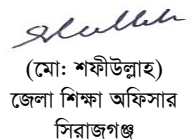 (মো: শফীউল্লাহ)
জেলা শিক্ষা অফিসার
সিরাজগঞ্জ